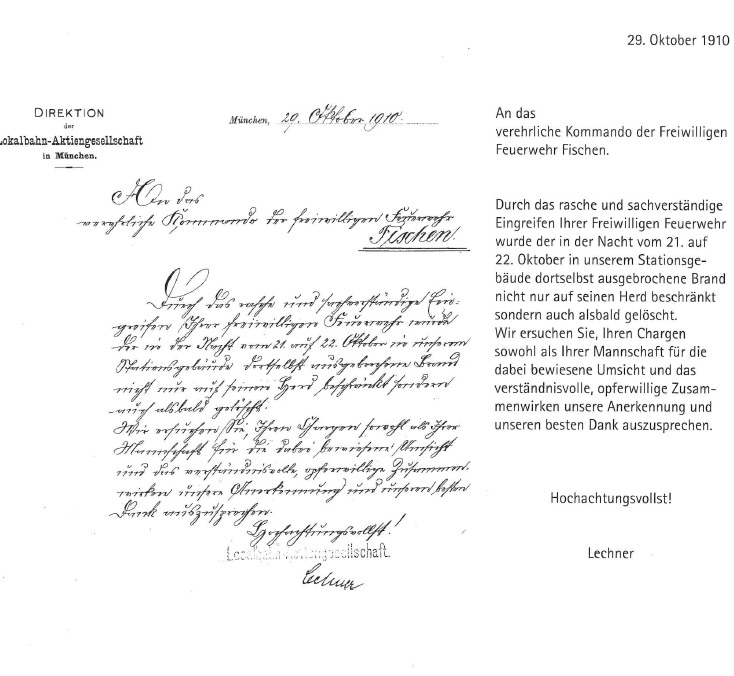 DIREKTION
der
Lokalbahn-Aktiengesellschaft
in München.
München, 29. Oktober 1910.
An das
verehrliche Kommando der freiwilligen Feuerwehr
Fischen.
Durch das rasche und sachverständige Ein-
greifen Ihrer freiwilligen Feuerwehr wurde
der in der Nacht vom 21. auf 22. Oktober in unserem
Stationsgebäude dortselbst ausgebrochene Brand
nicht nur auf seinen Herd beschränkt sondern
auch alsbald gelöscht.
Wir ersuchen Sie, Ihren Chargen sowohl als Ihrer
Mannschaft für die dabei bewiesene Umsicht
und das verständnisvolle, opferwillige Zusammen-
wirken unsere Anerkennung und unseren besten
Dank auszusprechen.
Hochachtungsvollst!
Localbahn-Aktiengesellschaft.
Lechner
29. Oktober 1910
An das
verehrliche Kommando der Freiwilligen
Feuerwehr Fischen.
Durch das rasche und sachverständige
Eingreifen Ihrer Freiwilligen Feuerwehr
wurde der in der Nacht vom 21. auf
22. Oktober in unserem Stationsge-
bäude dortselbst ausgebrochene Brand
nicht nur auf seinen Herd beschränkt
sondern auch alsbald gelöscht.
Wir ersuchen Sie, Ihren Chargen
sowohl als Ihrer Mannschaft für die
dabei bewiesene Umsicht und das
verständnisvolle, opferwillige Zusam-
menwirken unsere Anerkennung und
unseren besten Dank auszusprechen.
Hochachtungsvollst!
Lechner